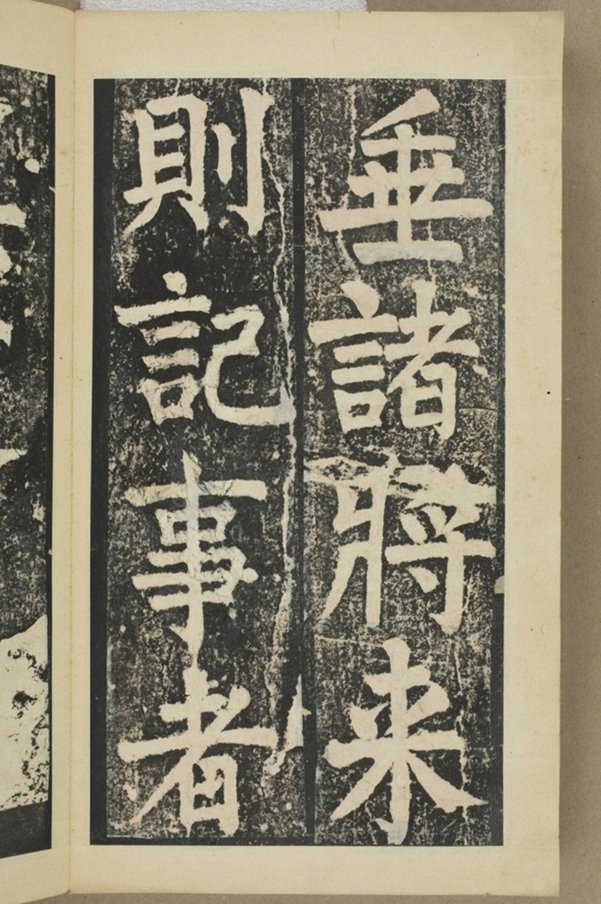 垂諸將来
則記事者